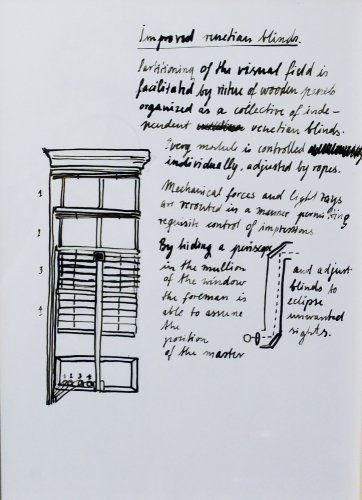 Improved venetian blinds.
Partitioning of the visual field is
facilitated by virtue of wooden panels
organized as a collective of inde-
pendent venetian blinds.
Every module is controlled
individually, adjusted by ropes.
Mechanical forces and light rays
are rerouted in a manner permitting
requisite control of impressions.
By hiding a periscope
in the mullion
of the window
the foreman is
able to assume
the
position
of the master
and adjust
blinds to
eclipse
unwanted
sights.
1
2
3
4
1 2 3 4